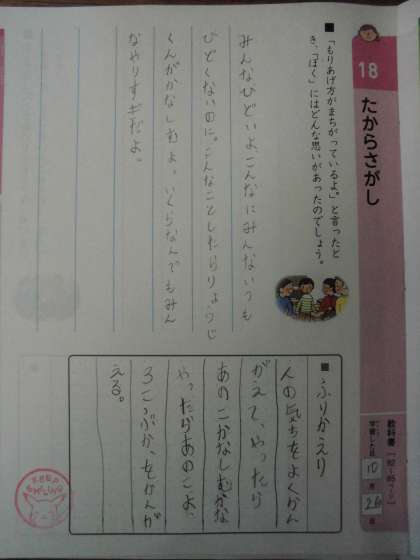 18
たからさがし
■「もりあげ方がまちがっているよ。」と言ったと
き、「ぼく」にはどんな思いがあったのでしょう。
みんなひどいよ、こんなにみんないつも
ひどくないのに。こんなことしたらりょうじ
くんがかなしむよ。いくらなんでもみん
なやりすぎだよ。
教科書
学習した日 10月26日
■ふりかえり
人の気もちをよくかん
がえて、やったら
あのこかなしむかな
やったらあのこよ、
ろこぶか、をかんが
える。